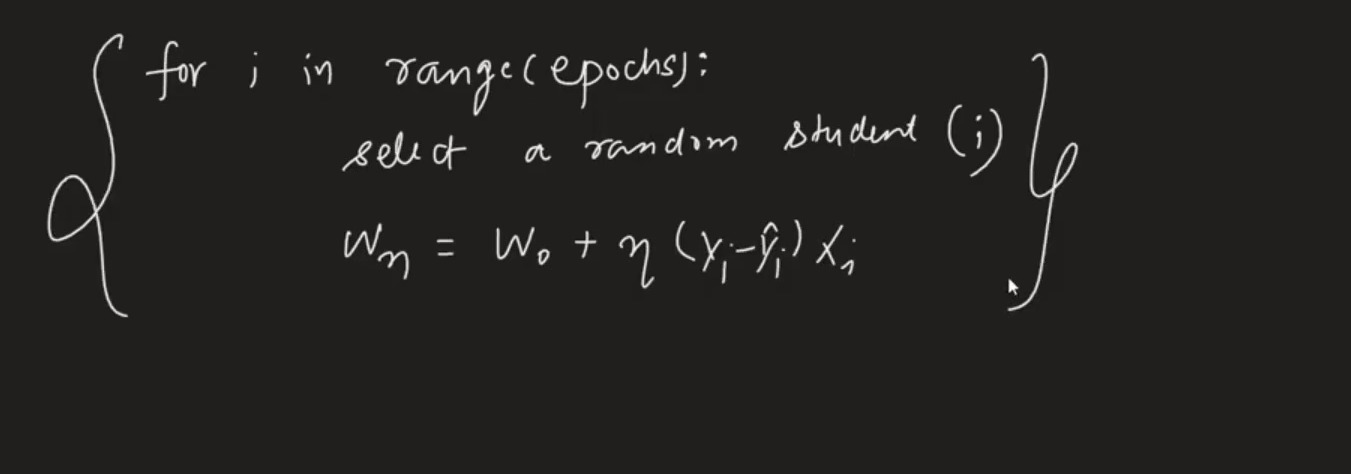 for i in range(epochs):
select a random student (i)
Wₙ = W₀ + η (yᵢ-ŷᵢ) xᵢ